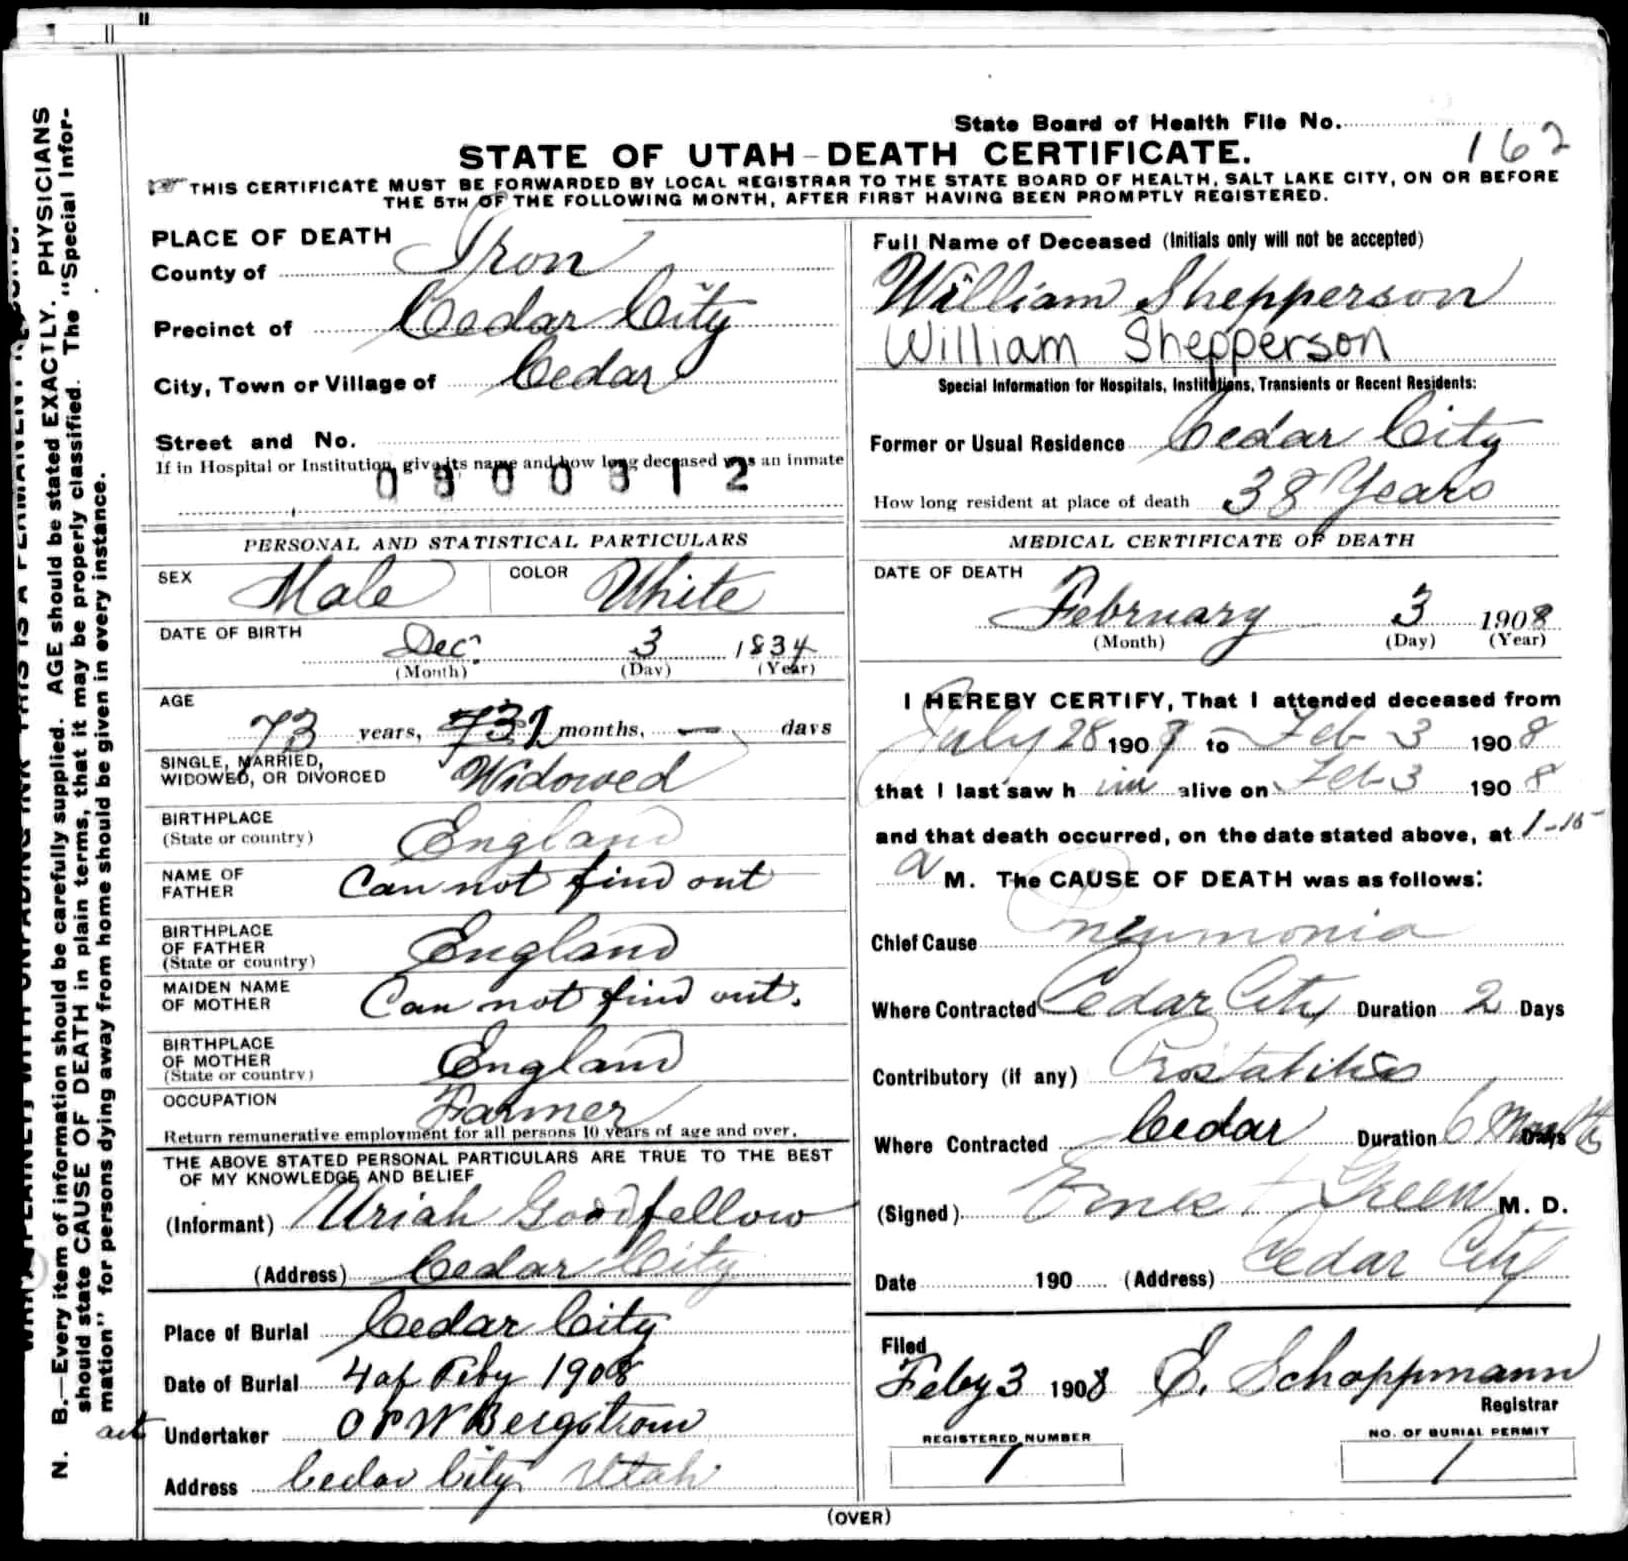 State Board of Health File No. 162
STATE OF UTAH - DEATH CERTIFICATE.
THIS CERTIFICATE MUST BE FORWARDED BY LOCAL REGISTRAR TO THE STATE BOARD OF HEALTH, SALT LAKE CITY, ON OR BEFORE
THE 5TH OF THE FOLLOWING MONTH, AFTER FIRST HAVING BEEN PROMPTLY REGISTERED.
PLACE OF DEATH
County of Iron
Precinct of Cedar City
City, Town or Village of Cedar
Street and No.
If in Hospital or Institution, give its name and how long deceased was an inmate
PERSONAL AND STATISTICAL PARTICULARS
SEX Male COLOR White
DATE OF BIRTH Dec. 3 1834
(Month) (Day) (Year)
AGE 73 years, months, — days
SINGLE, MARRIED,
WIDOWED, OR DIVORCED Widowed
BIRTHPLACE
(State or country) England
NAME OF
FATHER Can not find out
BIRTHPLACE
OF FATHER
(State or country) England
MAIDEN NAME
OF MOTHER Can not find out.
BIRTHPLACE
OF MOTHER
(State or country) England
OCCUPATION Farmer
Return remunerative employment for all persons 10 years of age and over.
THE ABOVE STATED PERSONAL PARTICULARS ARE TRUE TO THE BEST
OF MY KNOWLEDGE AND BELIEF
(Informant) Uriah Goodfellow
(Address) Cedar City
Place of Burial Cedar City
Date of Burial 4 of Feby 1908
Undertaker Bergstrom
Address Cedar City Utah
Full Name of Deceased (Initials only will not be accepted)
William Shepperson
William Shepperson
Special Information for Hospitals, Institutions, Transients or Recent Residents:
Former or Usual Residence Cedar City
How long resident at place of death 38 Years
MEDICAL CERTIFICATE OF DEATH
DATE OF DEATH February 3 1908
(Month) (Day) (Year)
I HEREBY CERTIFY, That I attended deceased from
July 28 1907 to Feb 3 1908
that I last saw him alive on Feb 3 1908
and that death occurred, on the date stated above, at 1-15
a M. The CAUSE OF DEATH was as follows:
Chief Cause Pneumonia
Where Contracted Cedar City Duration 2 Days
Contributory (if any) Prostatitis
Where Contracted Cedar Duration 6 Months Days
(Signed) Ernest Green M. D.
Date 190 (Address) Cedar City
Filed
Feby 3 1908 E. Schoppmann
Registrar
REGISTERED NUMBER
1
NO. OF BURIAL PERMIT
1
(OVER)
N. B.—Every item of information should be carefully supplied. AGE should be stated EXACTLY. PHYSICIANS
should state CAUSE OF DEATH in plain terms, that it may be properly classified. The "Special Infor-
mation" for persons dying away from home should be given in every instance.